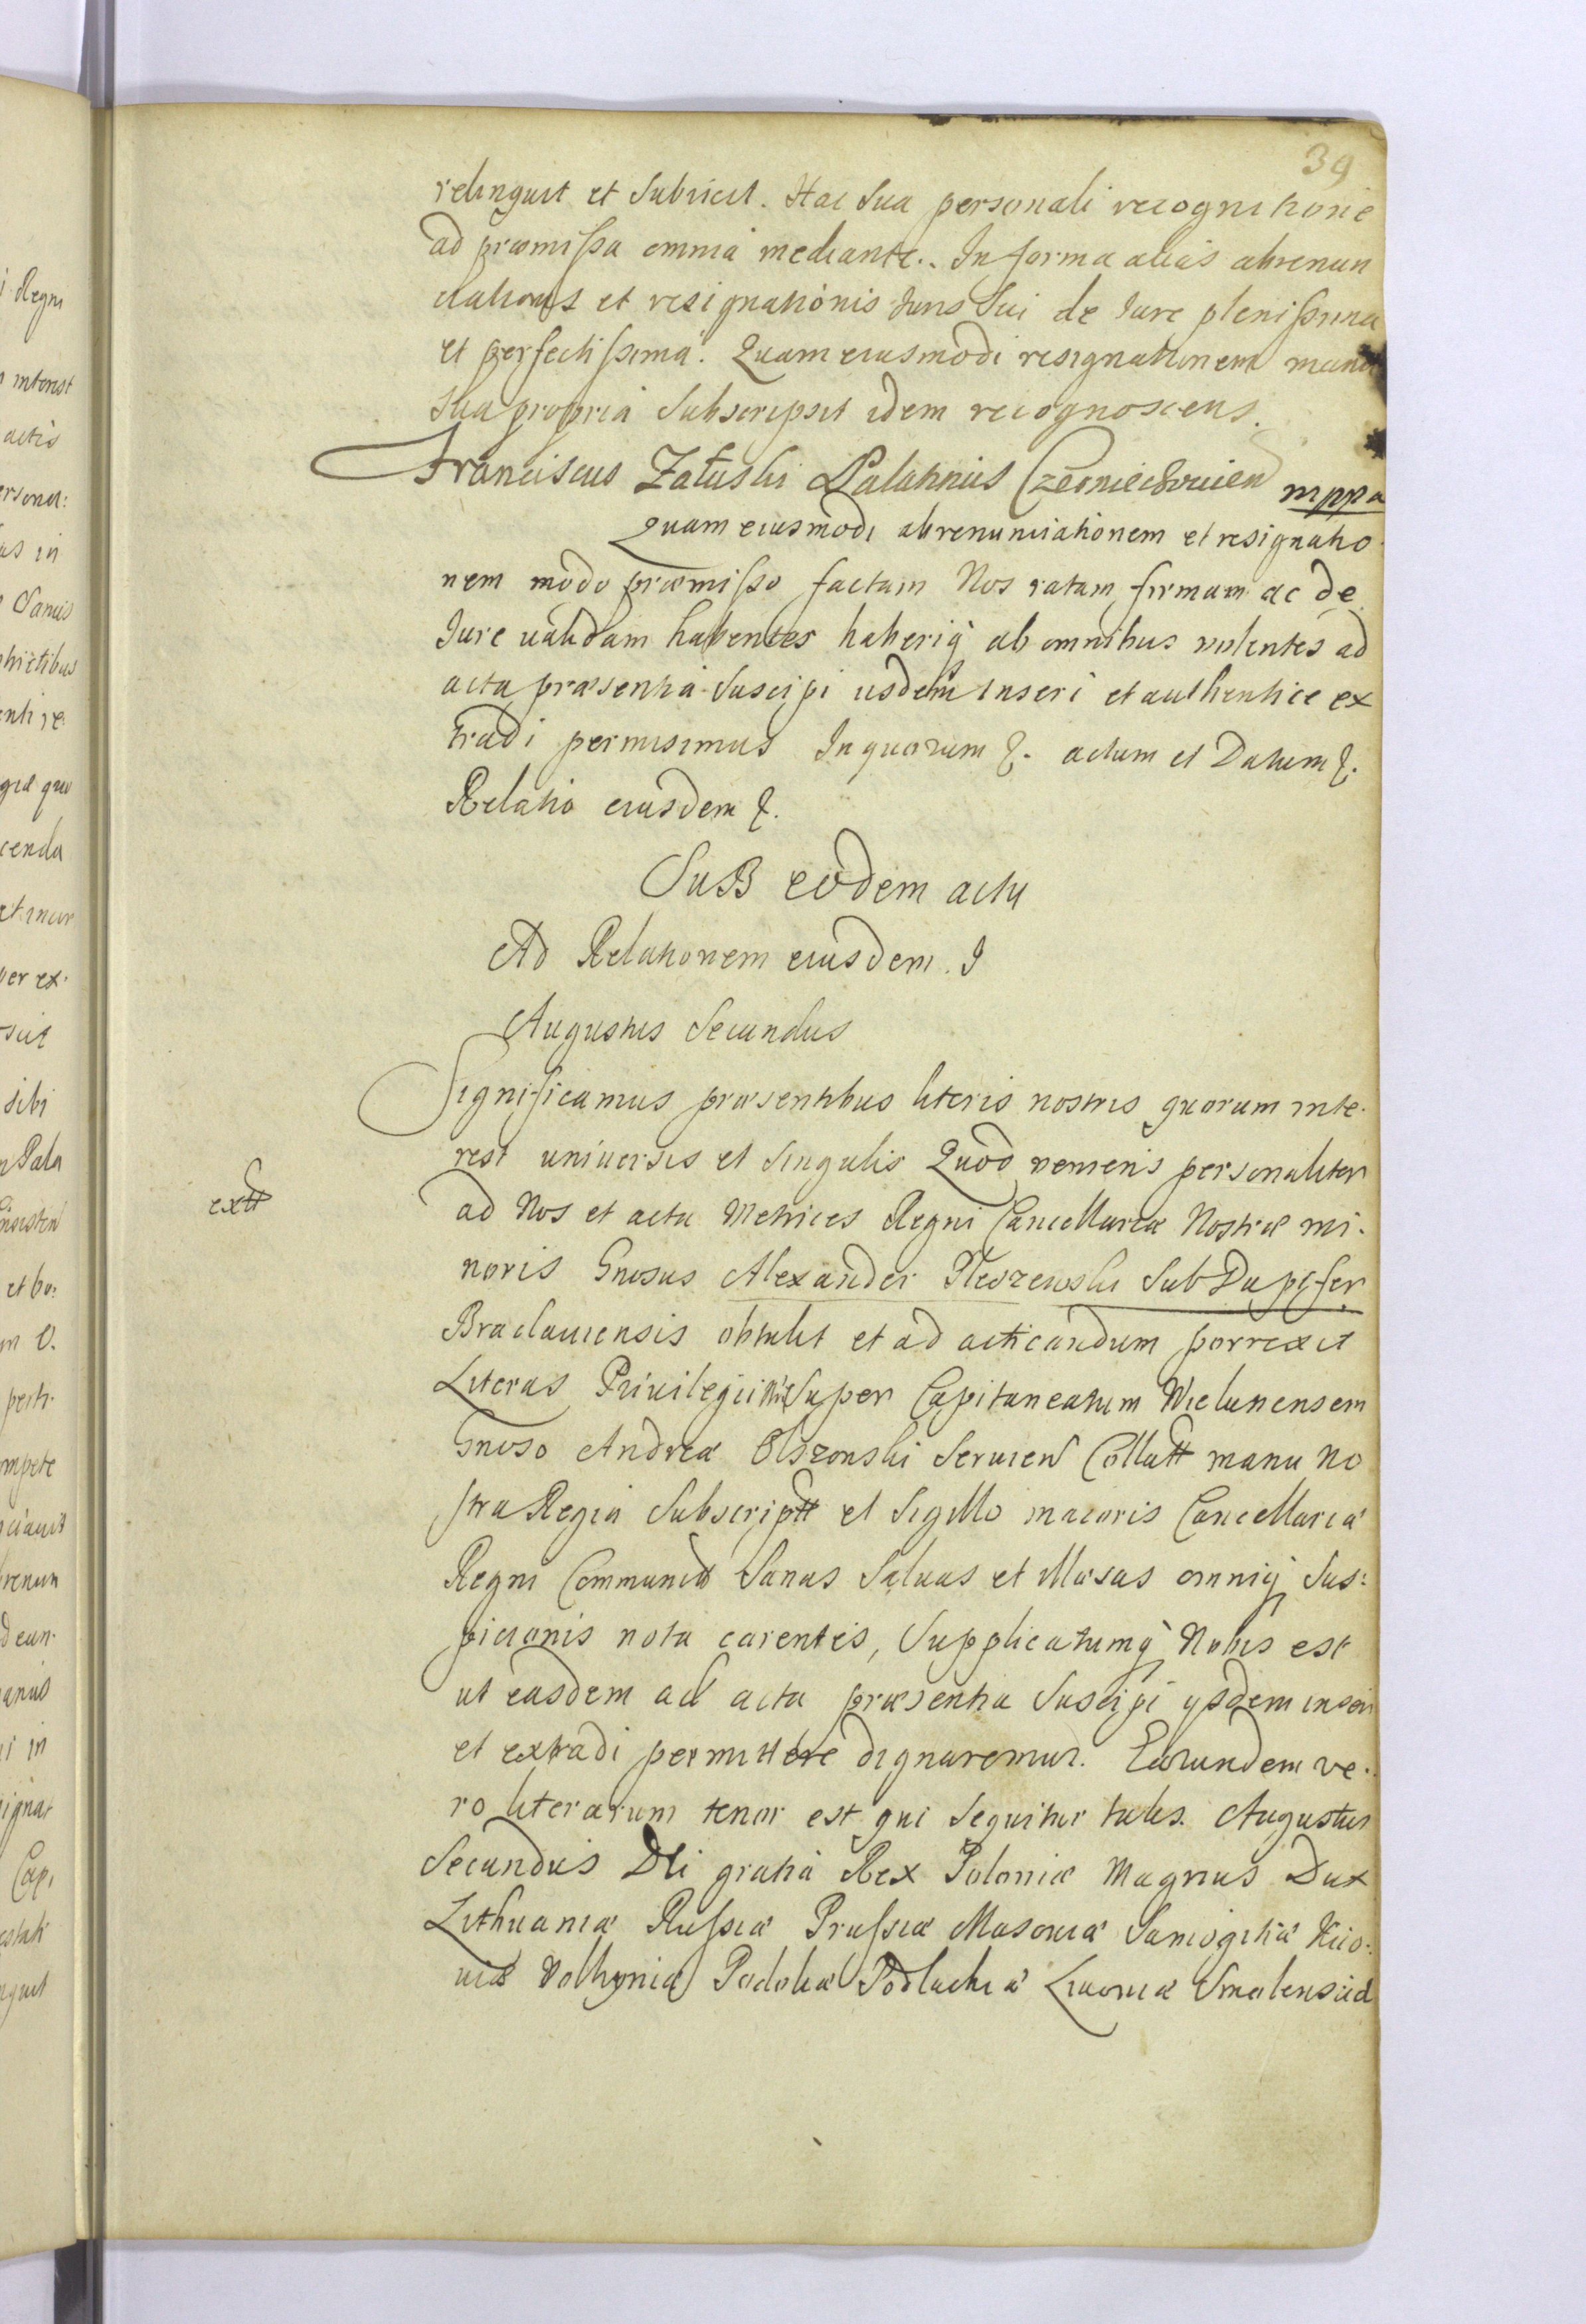 39
relinquit et Subiicit. Hac Sua personali recognitione
ad præmissa omnia mediante. In forma alias abrenun
ciationis et resignationis Iuris Sui de Iure plenissima
et perfectissima. Quam eiusmodi resignationem manu
Sua propria Subscripsit idem recognoscens.
Franciscus Załuski Palatinus Czerniechouien mppa
Quam eiusmodi abrenunciationem et resignatio
nem modo præmisso factam Nos ratam firmam ac de
Iure ualidam habentes haberiq ab omnibus uolentes ad
acta præsentia Suscipi iisdem inseri et authentice ex
tradi permisimus In quorum &. actum et Datum &.
Relatio eiusdem &.
SuB eodem actu
Ad Relationem eiusdem.
Augustus Secundus
Significamus præsentibus literis nostris quorum inte.
rest uniuersis et Singulis Quod ueniens personaliter
extt
ad Nos et acta Metrices Regni Cancellariæ Nostræ mi.
noris Gnosus Alexander SubDapifer
Braclauiensis obtulit et ad acticandum porrexit
Literas Priuilegii Super Capitaneatum Wielunensem
Gnoso Andreæ Olszonski Seruien Collatt manu No
stra Regia Subscriptt et Sigillo maioris Cancellariæ
Regni Communitt Sanas Saluas et Illæsas omniq Sus:
picionis nota carentes, Supplicatumq Nobis est
ut easdem ad acta præsentia Suscipi ysdem inseri
et extradi permittere dignaremur. Earundem ve.
ro literarum tenor est qui Sequitur talis. Augustus
Secundus Dei gratia Rex Poloniæ Magnus Dux
Lithuaniæ Russiæ Prussiæ Masouiæ Samogitiæ Kiio:
uiæ Volhyniæ Podoliæ Podlachiæ Liuoniæ Smolensciæ